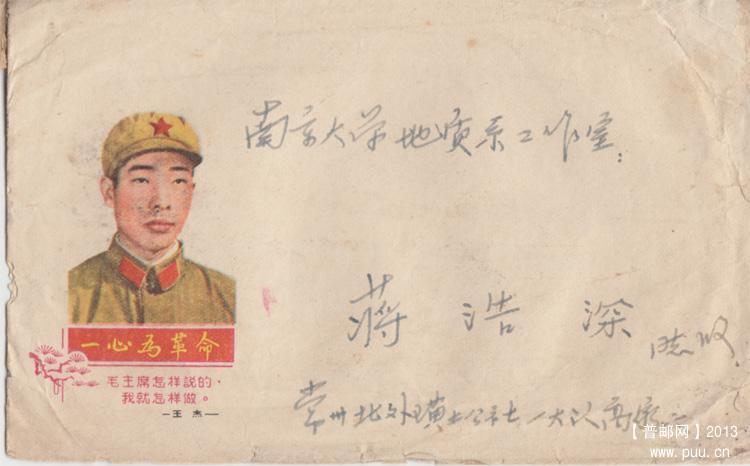 南京大学地质系工作室:
蒋浩深
收
一心为革命
毛主席怎样説的,
我就怎样做。
—王杰—
常州北外璜土公社一大队高
【普邮网】2013
www.puu.cn